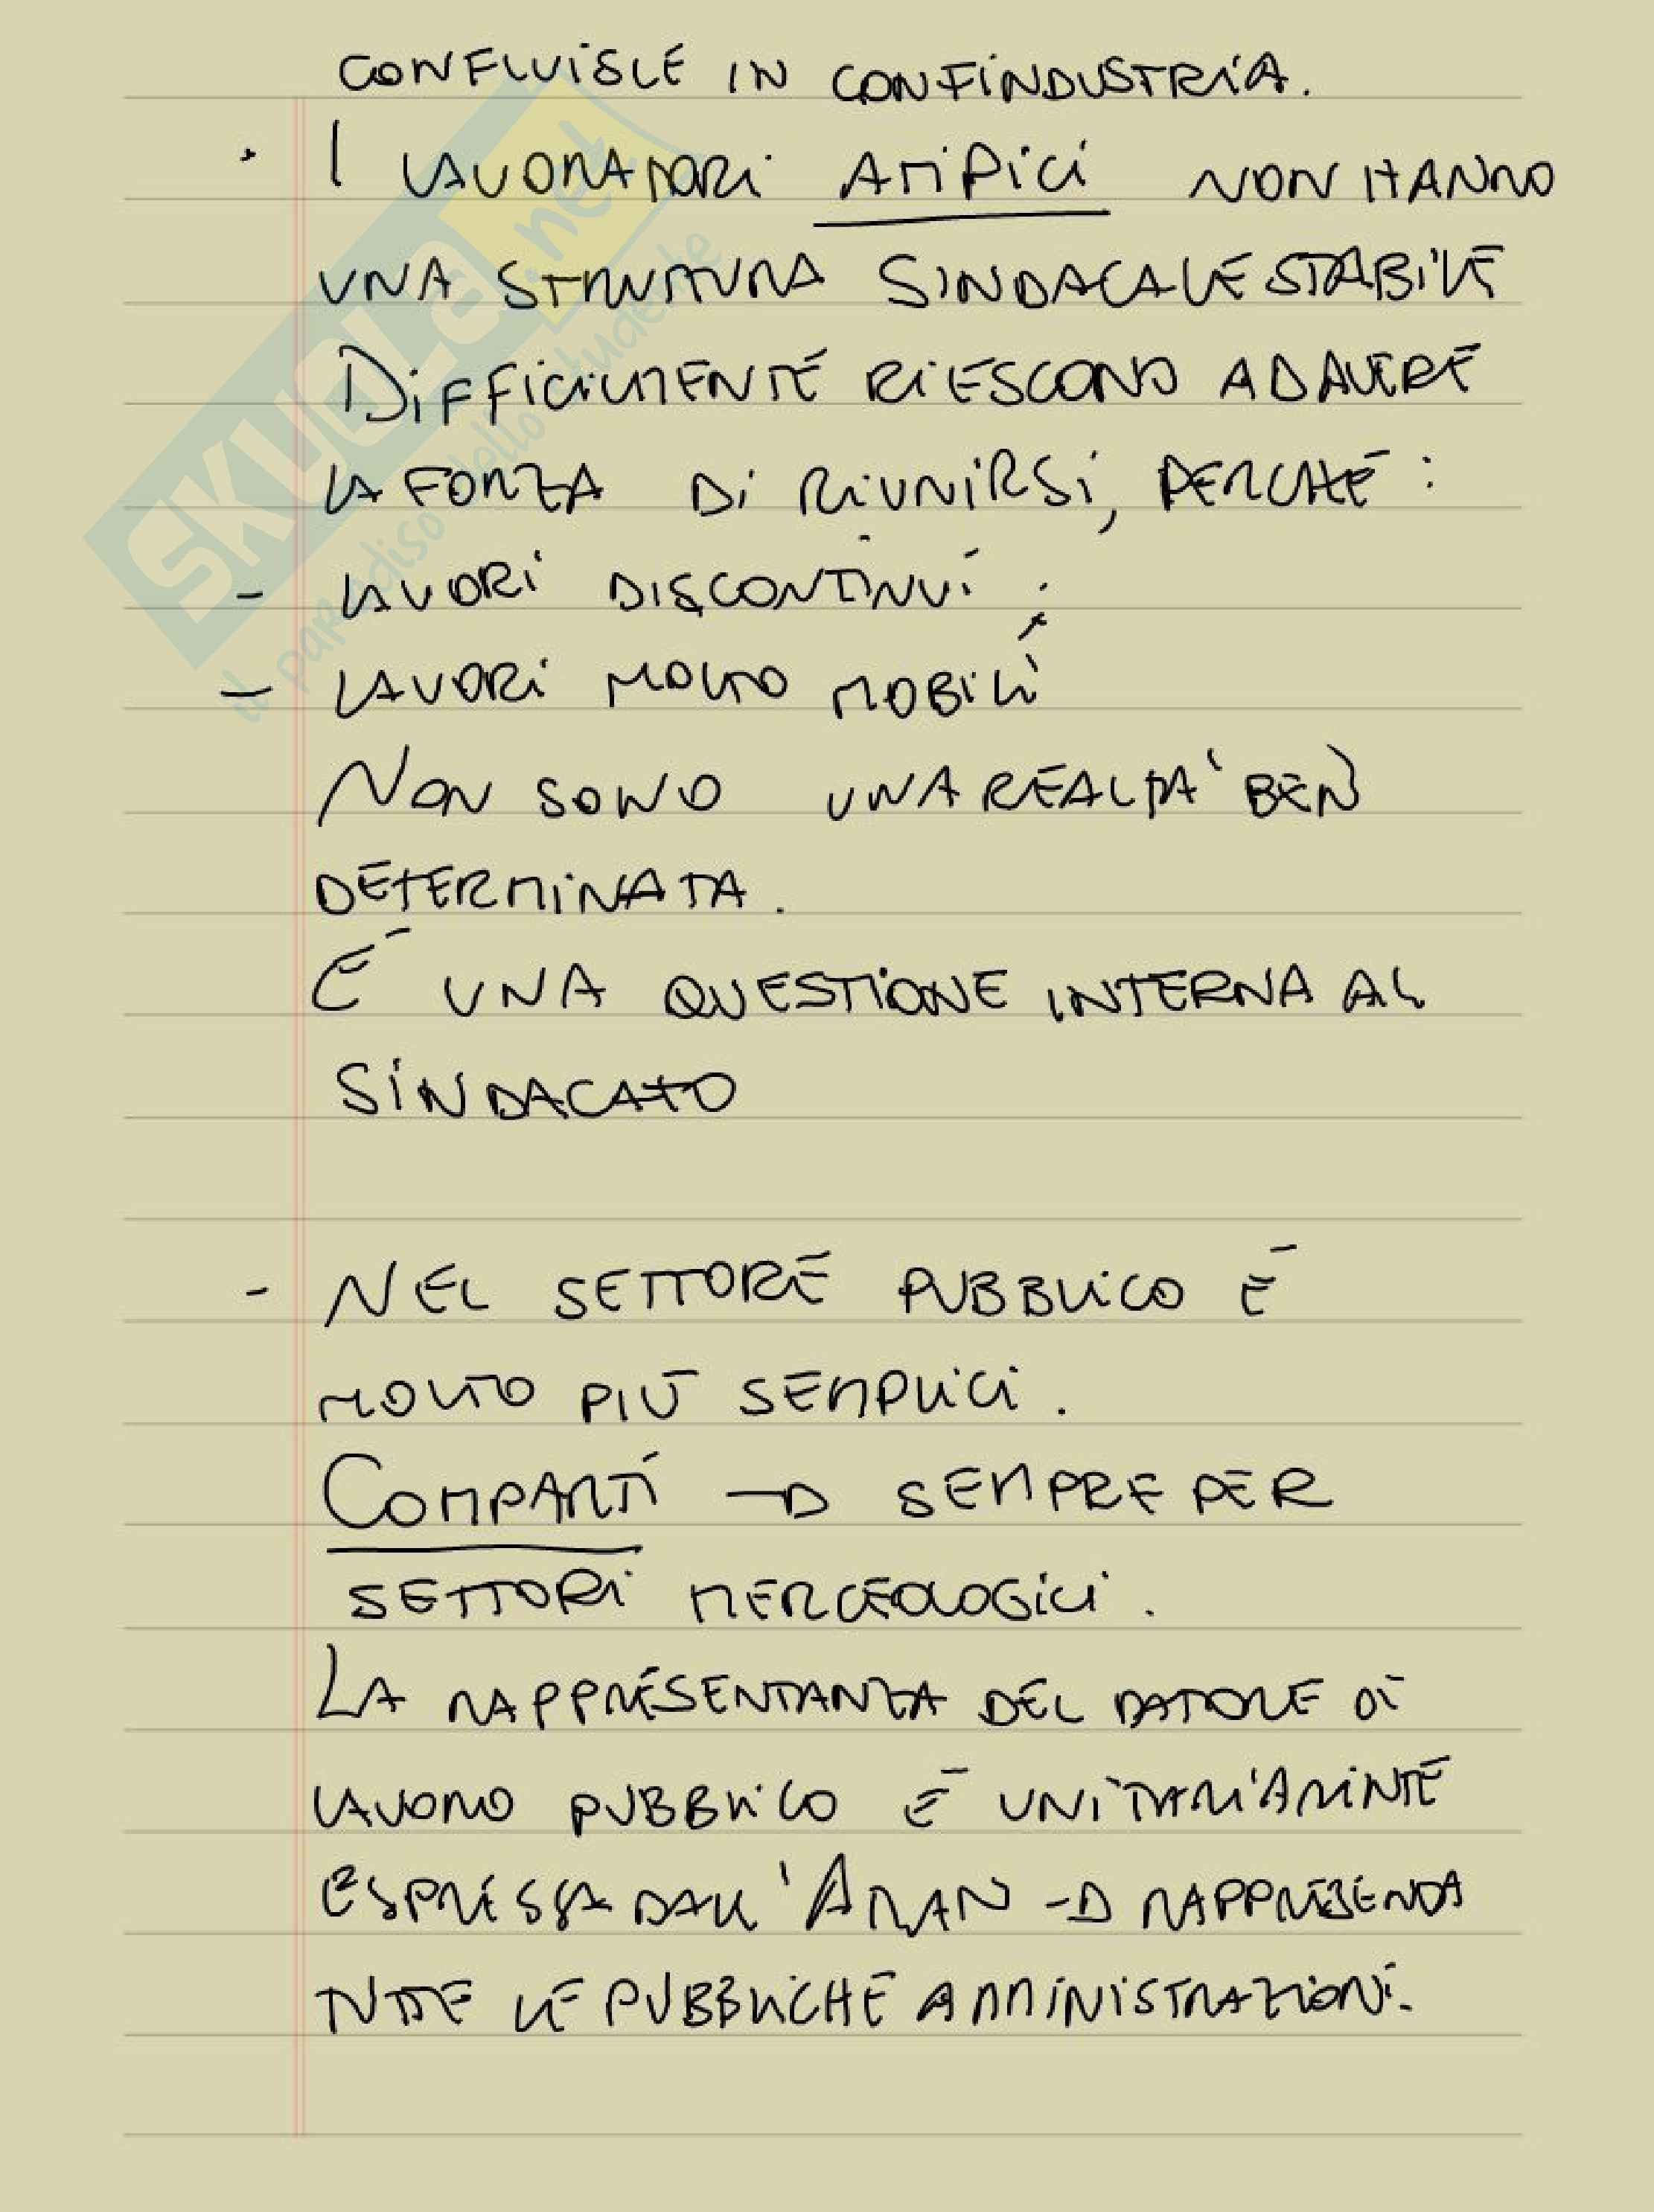 CONFLUISCE IN CONFINDUSTRIA.
· I LAVORATORI ATIPICI NON HANNO
UNA STRUTTURA SINDACALE STABILE
DIFFICILMENTE RIESCONO AD AVERE
LA FORZA DI RIUNIRSI, PERCHÉ :
- LAVORI DISCONTINUI ;
- LAVORI MOLTO MOBILI
NON SONO UNA REALTA' BEN
DETERMINATA.
É UNA QUESTIONE INTERNA AL
SINDACATO
- NEL SETTORE PUBBLICO É
MOLTO PIÙ SEMPLICI.
COMPARTI → SEMPRE PER
SETTORI MERCEOLOGICI.
LA RAPPRESENTANZA DEL DATORE DI
LAVORO PUBBLICO É UNITARIAMENTE
ESPRESSA DALL'ARAN → RAPPRESENTA
TUTTE LE PUBBLICHE AMMINISTRAZIONI.
SKUOLA.net
il paradiso dello studente